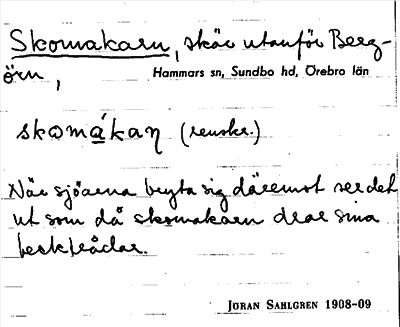 Skomakarn, skär utanför Berg-
örn,
Hammars sn, Sundbo hd, Örebro län
skomákaṇ (renskr.)
När sjöarna bryta sig däremot ser det
ut som då skomakarn drar sina
becktrådar.
JÖRAN SAHLGREN 1908-09